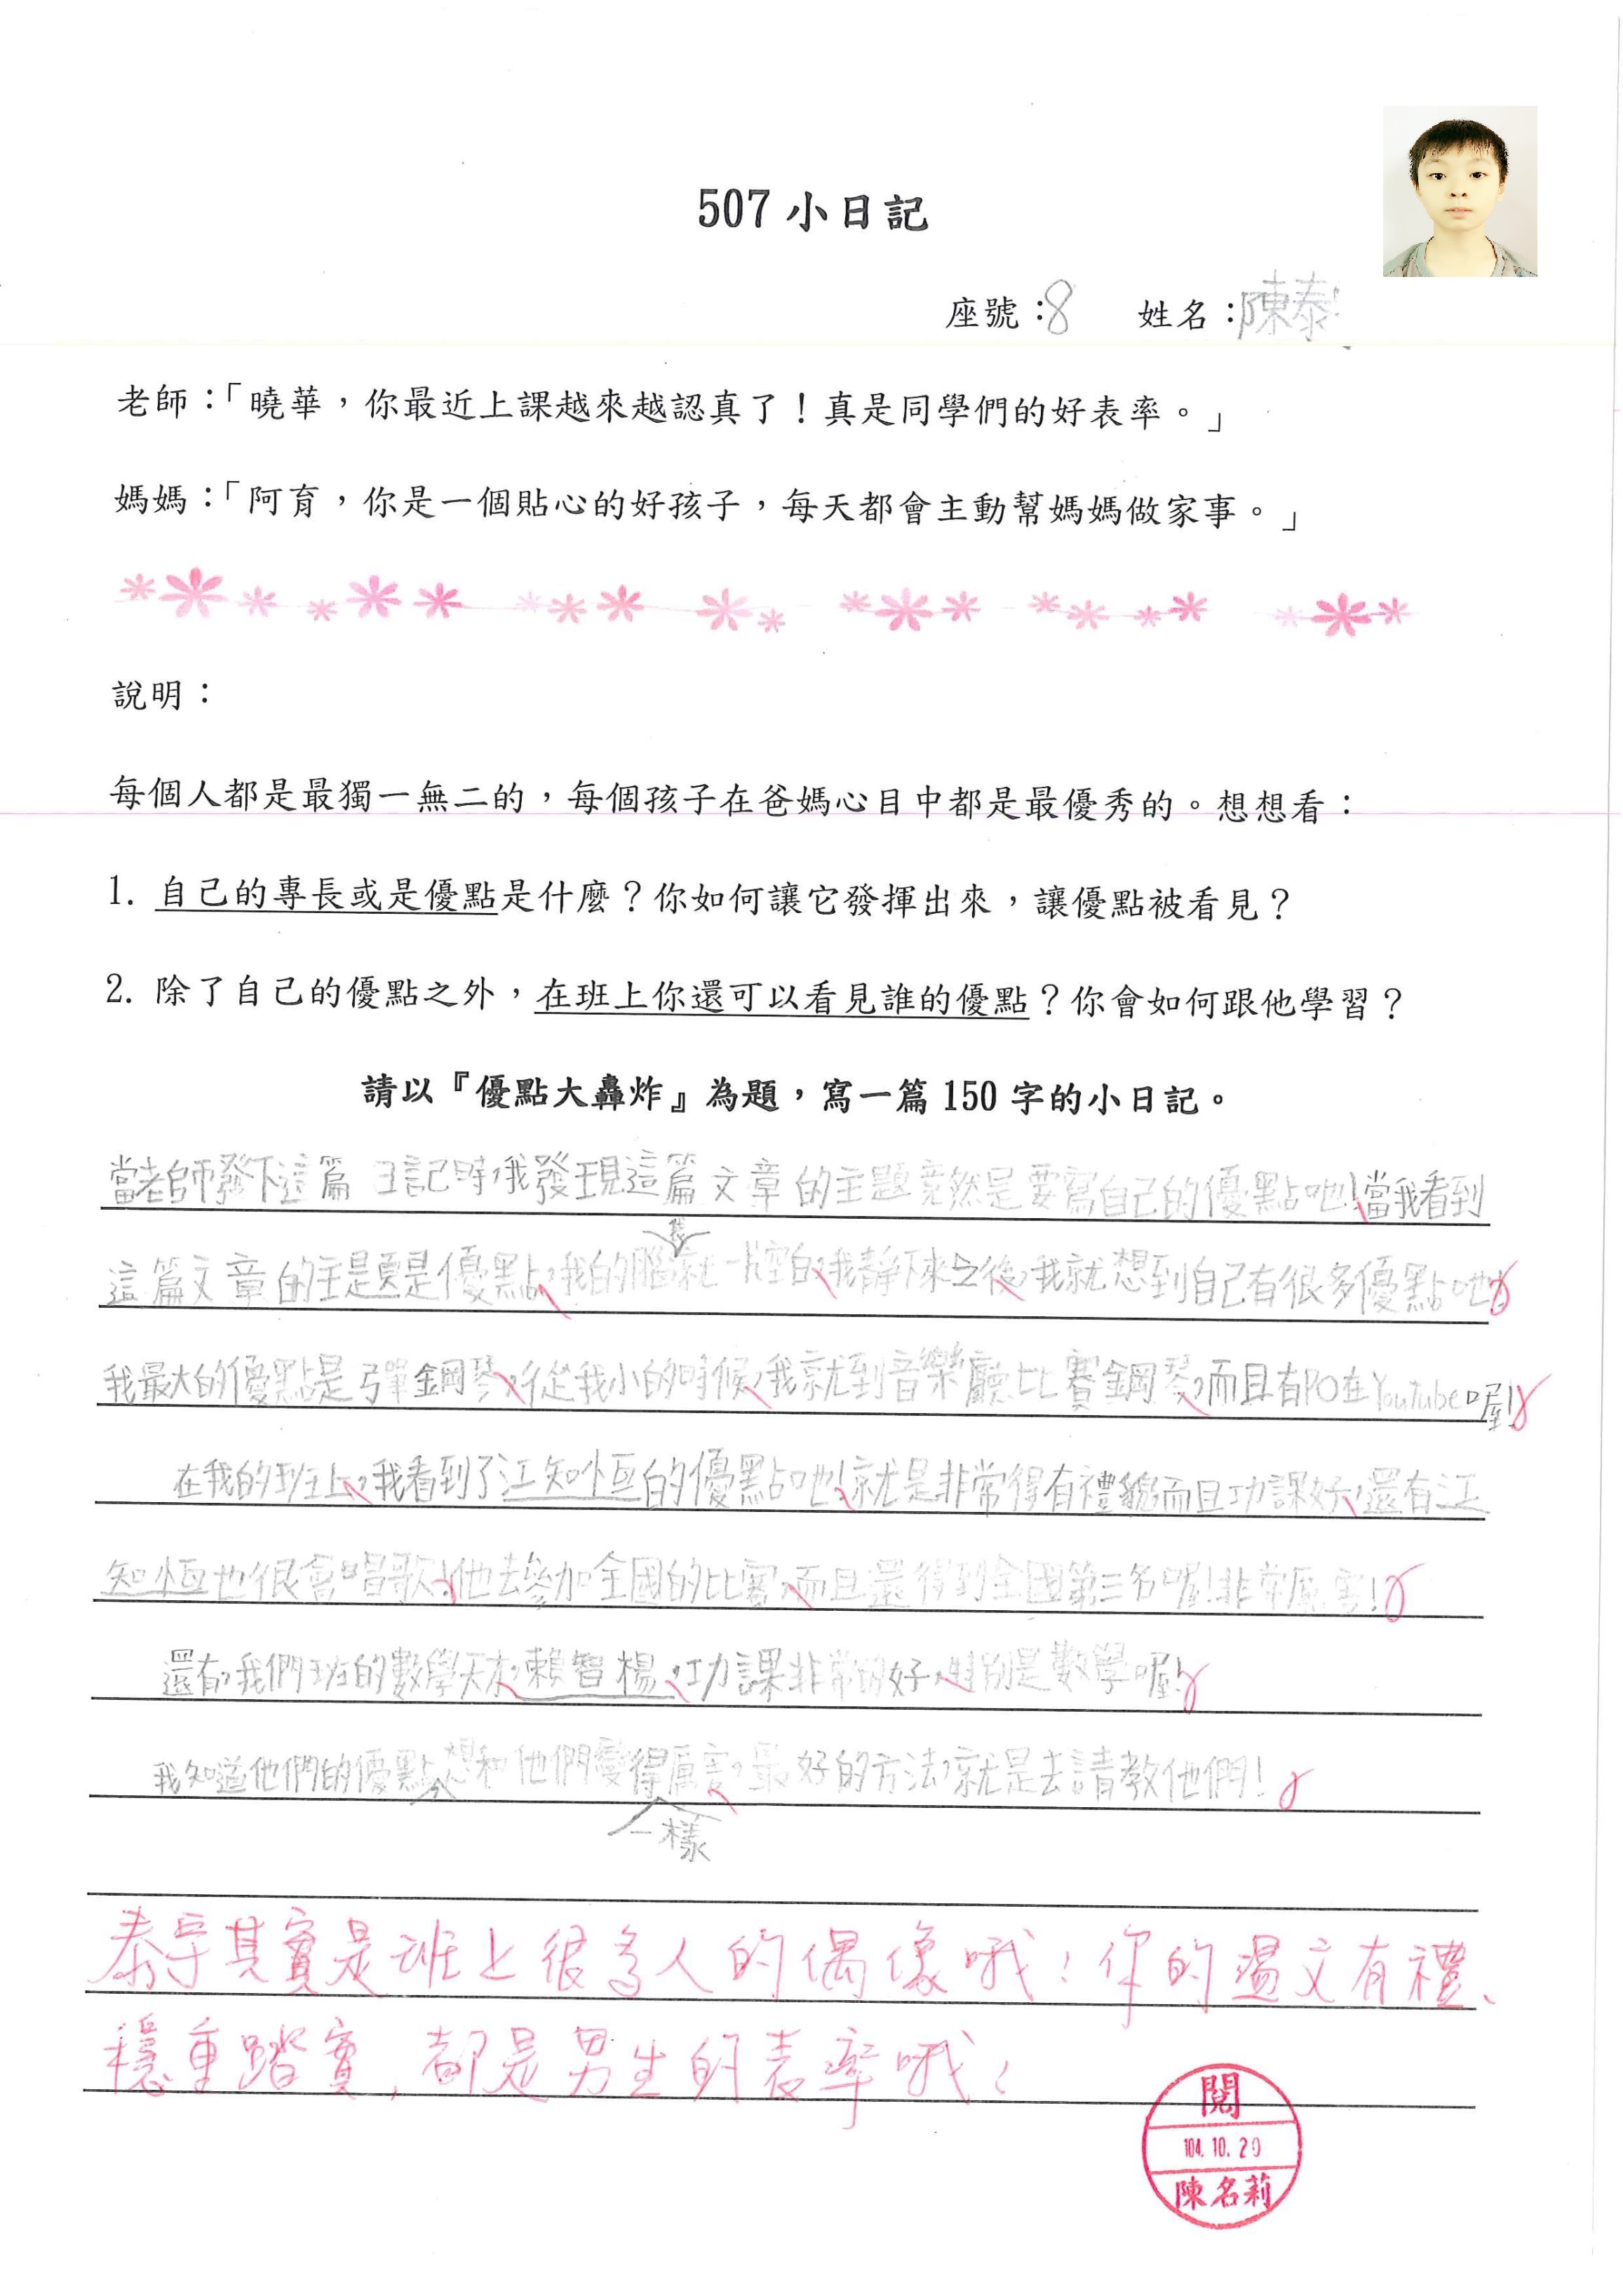 507 小日記
座號：8 姓名：陳泰
老師：「曉華，你最近上課越來越認真了！真是同學們的好表率。」
媽媽：「阿育，你是一個貼心的好孩子，每天都會主動幫媽媽做家事。」
說明：
每個人都是最獨一無二的，每個孩子在爸媽心目中都是最優秀的。想想看：
1. 自己的專長或是優點是什麼？你如何讓它發揮出來，讓優點被看見？
2. 除了自己的優點之外，在班上你還可以看見誰的優點？你會如何跟他學習？
請以『優點大轟炸』為題，寫一篇 150 字的小日記。
當老師發下這篇日記時，我發現這篇文章的主題竟然是要寫自己的優點吔！當我看到
這篇文章的主題是優點，我的腦就一片空白，我靜下來之後，我就想到自己有很多優點吔！
我最大的優點是彈鋼琴，從我小的時候，我就到音樂廳比賽鋼琴，而且有PO在YouTube喔！
在我的班上，我看到了江知恆的優點吔！就是非常得有禮貌而且功課好，還有江
知恆也很會唱歌！他去參加全國的比賽，而且還得到全國第三名喔！非常厲害！
還有，我們班的數學天才，賴智楊，功課非常的好，特別是數學喔！
我知道他們的優點，想和他們變得厲害，最好的方法，就是去請教他們！
一樣
泰宇其實是班上很多人的偶像哦！你的溫文有禮、
穩重踏實，都是男生的表率哦！
閱
104.10.20
陳名莉